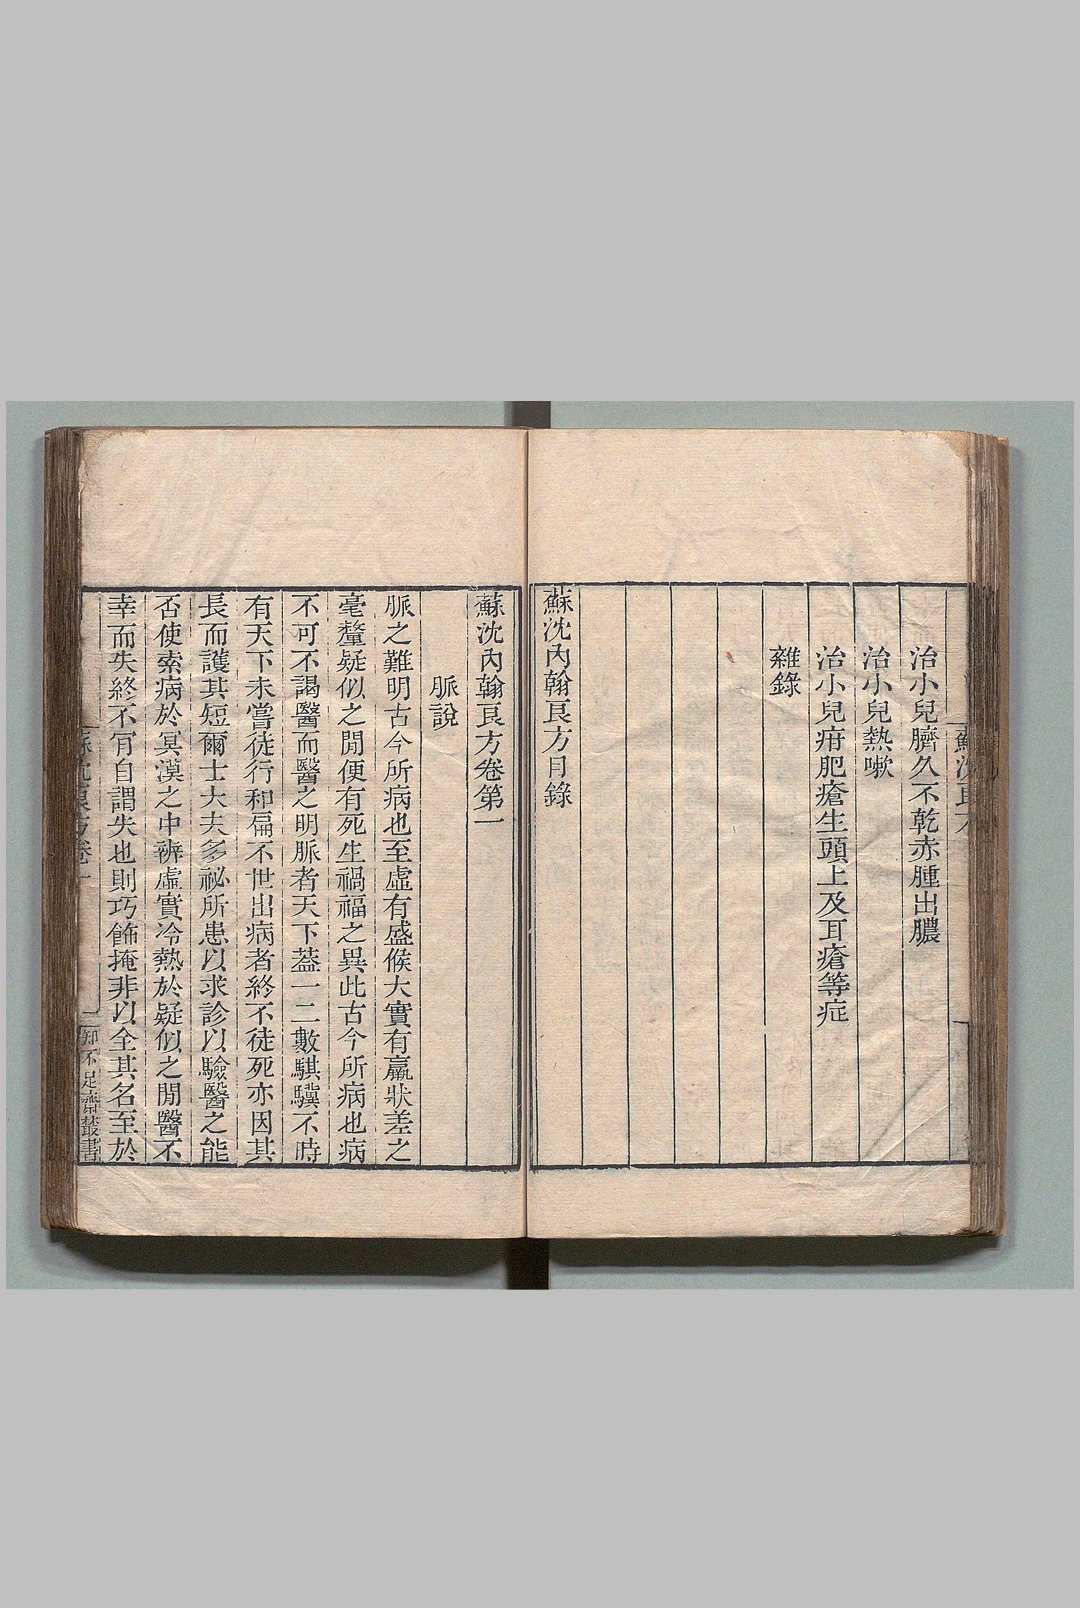 治小兒臍久不乾赤腫出膿
治小兒熱嗽
治小兒疳肥瘡生頭上及耳瘡等症
雜錄
蘇沈內翰良方目錄
蘇沈內翰良方卷第一
脈說
脈之難明古今所病也至虛有盛候大實有羸狀差之
毫釐疑似之閒便有死生禍福之異此古今所病也病
不可不謁醫而醫之明脈者天下蓋一二數騏驥不時
有天下未嘗徒行和扁不世出病者終不徒死亦因其
長而護其短爾士大夫多祕所患以求診以驗醫之能
否使索病於冥漠之中辨虛實冷熱於疑似之閒醫不
幸而失終不肎自謂失也則巧飾掩非以全其名至於
知不足齋叢書